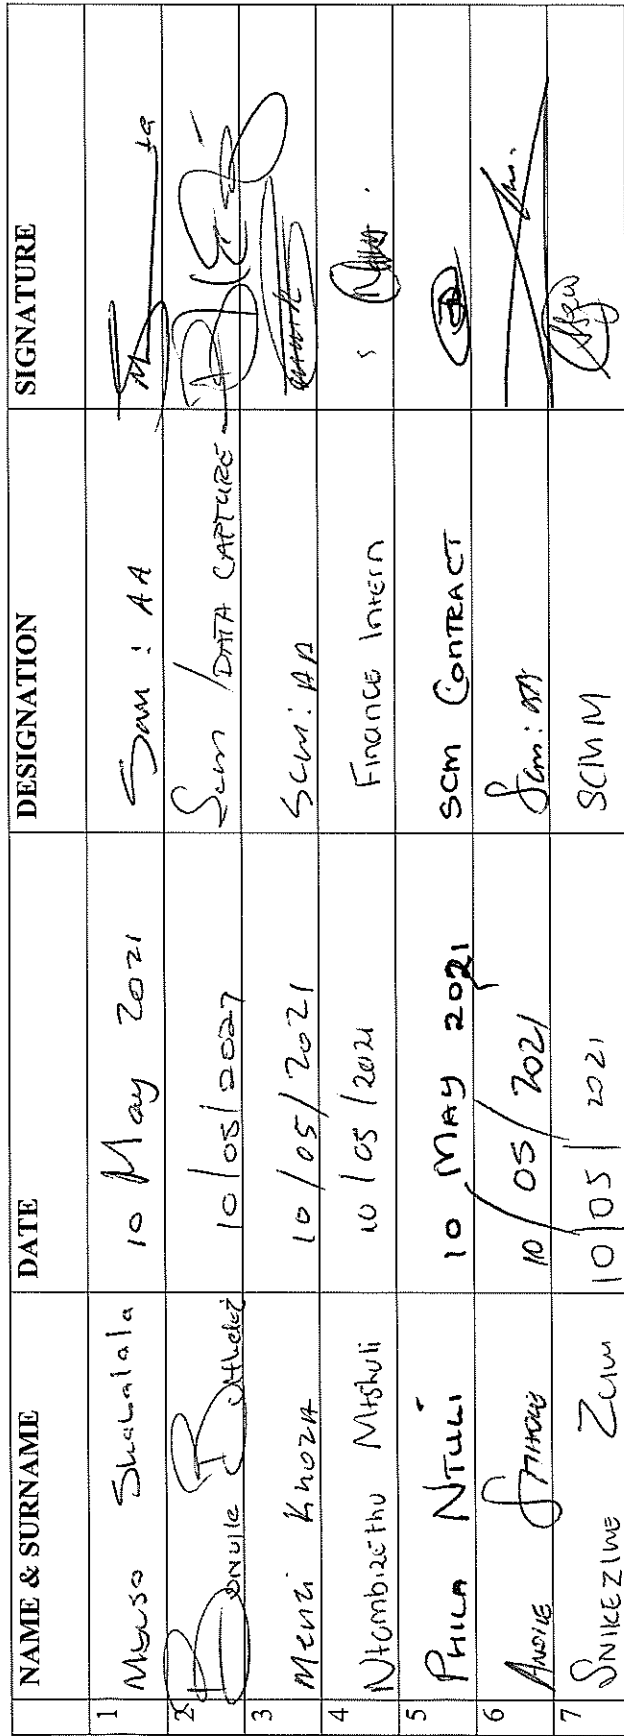 NAME & SURNAME DATE DESIGNATION SIGNATURE
1 Mbuso Shabalala 10 May 2021 Scm : AA
2 Bonuile Buthelezi 10/05/2021 Scm / DATA CAPTURE
3 Menzi Khoza 10/05/2021 Scm: AA
4 Ntombizethu Mtshuli 10/05/2021 Finance Intern
5 PHILA NTULI 10 MAY 2021 SCM CONTRACT
6 ANDILE 10/05/2021 Scm: AA
7 SNIKEZIWE ZUM 10/05/2021 SCMM